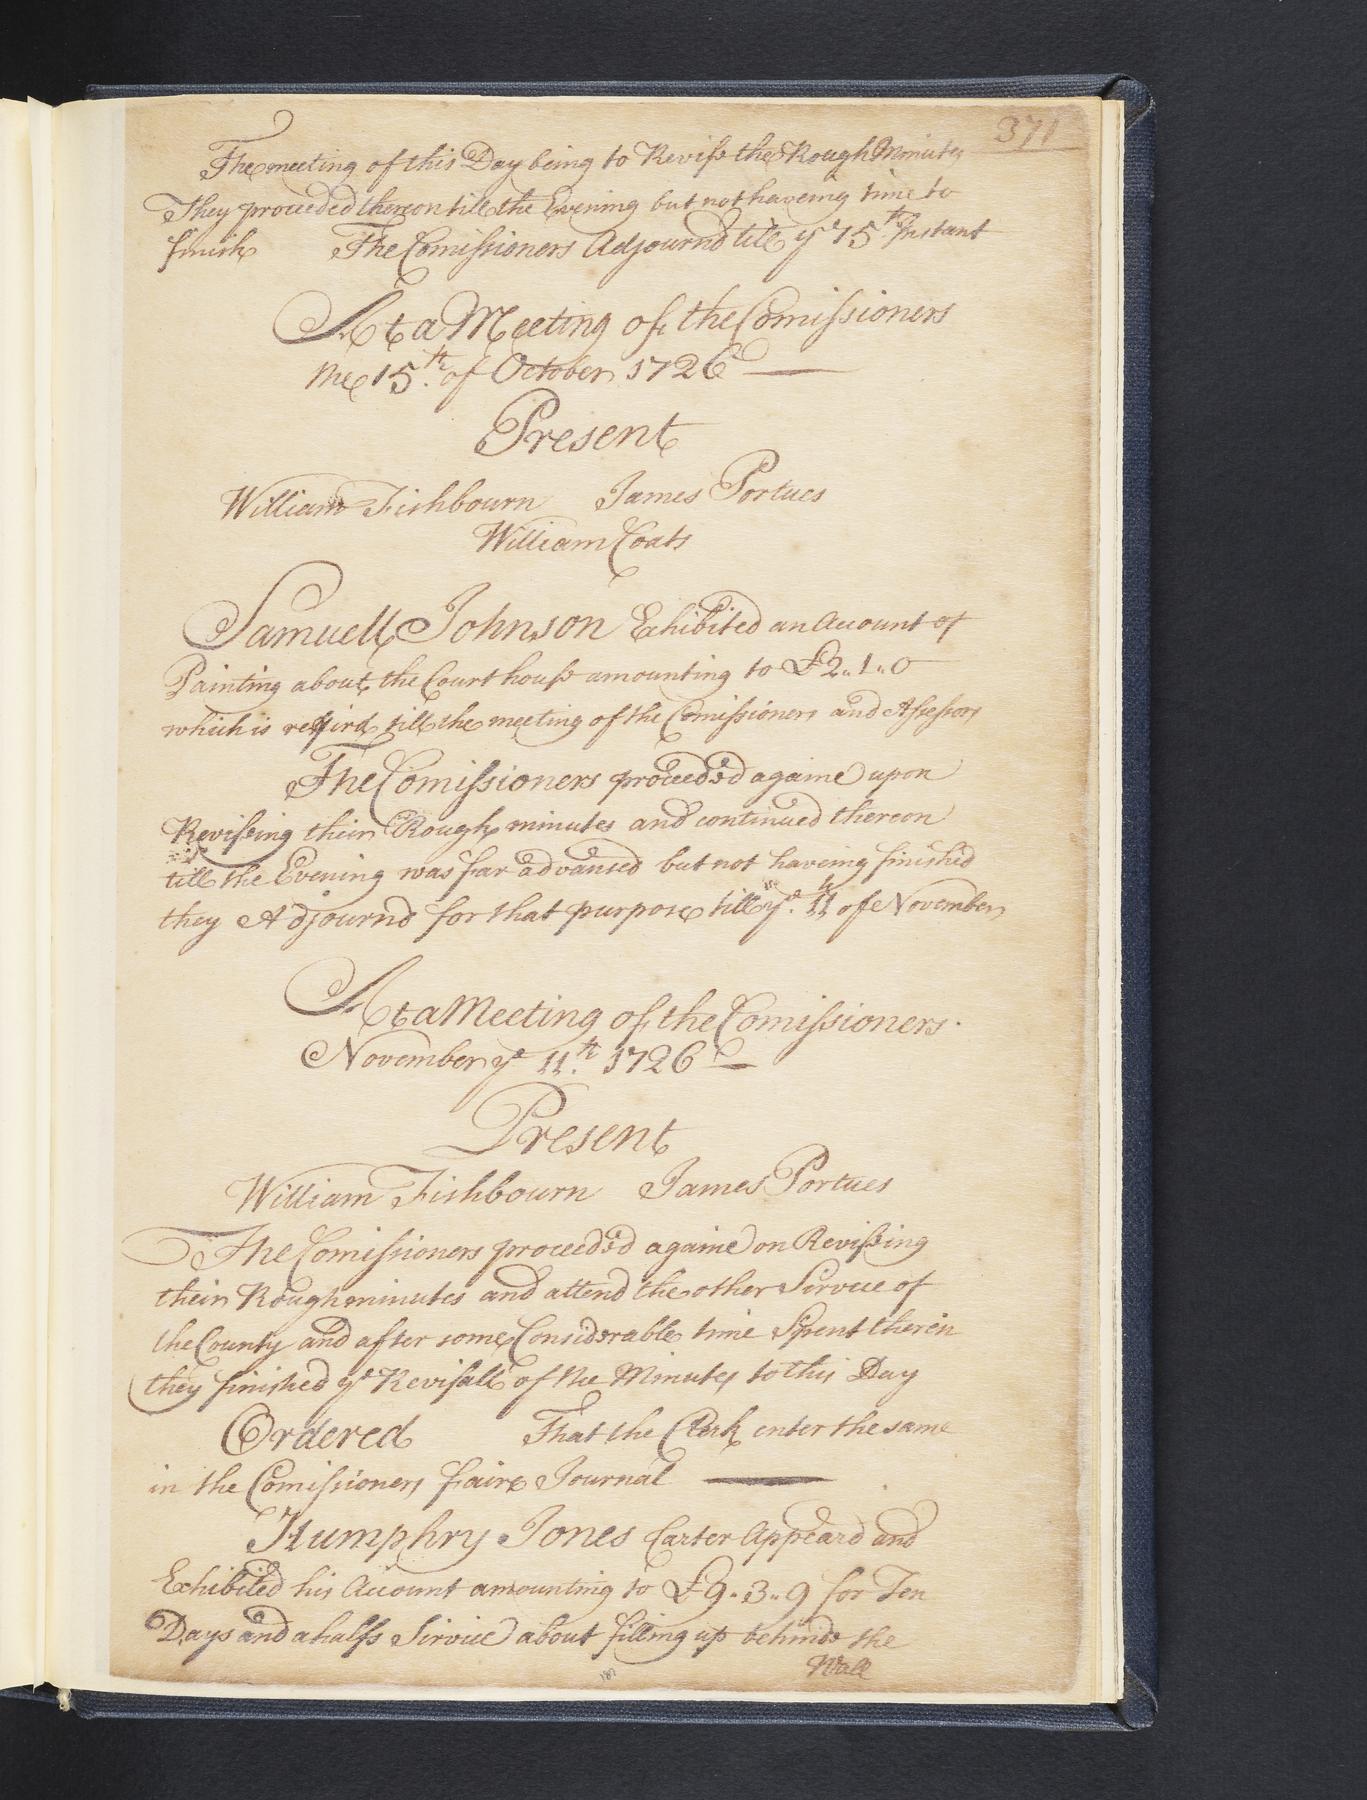 371
The meeting of this Day being to Revise the Rough Minutes
They proceeded thereon till the Evening but not haveing time to
finish The Comissioners Adjournd till ye 15th Instant
At a Meeting of the Comissioners
the 15th of October 1726
Present
William Fishbourn James Portues
William Coats
Samuell Johnson Exhibited an Account of
Painting about the Court house amounting to £2,,1,,0
which is till the meeting of the Comissioners and Assessors
The Comissioners proceeded againe upon
Revising their Rough minutes and continued thereon
till the Evening was far advanced but not haveing finished
they Adjournd for that purpose till ye 11th of November
At a Meeting of the Comissioners
November ye 11th 1726
Present
William Fishbourn James Portues
The Comissioners proceeded againe on Revising
their Rough minutes and attend the other Service of
the County and after some Considerable time Spent therein
they finished ye Revisall of the Minutes to this Day
Ordered That the Clerk enter the same
in the Comissioners faire Journal
Humphry Jones Carter Appeard and
Exhibited his Account amounting to £9,,3,,9 for Ten
Days and a halfs Service about filling up behinde the
Wall
187